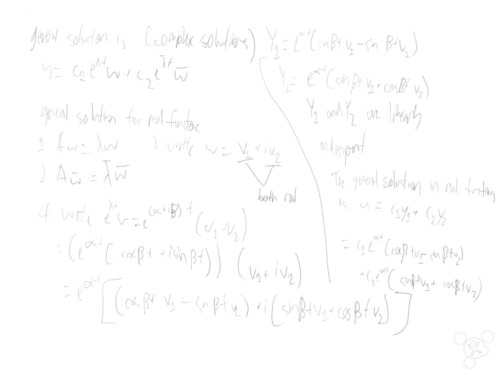 general solution is (complex solutions)
y = c₁e^λt w + c₂e^λ̄t w̄
general solution for real function
1 Aw = λw ) write w = v₁ + iv₂
2) Aw̄ = λ̄w̄
both real
4) write e^λt v = e^(α+iβ)t (v₁+v₂)
= (e^αt (cosβt + isinβt)) (v₁ + iv₂)
= e^αt [(cosβt v₁ - sinβt v₂) + i(sinβt v₁ + cosβt v₂)]
Y₁ = e^αt (cosβt v₁ - sinβt v₂)
Y₂ = e^αt (sinβt v₁ + cosβt v₂)
Y₁ and Y₂ are linearly
independent
The general solution in real functions
is u = c₁y₁ + c₂y₂
= c₁e^αt (cosβt v₁ - sinβt v₂)
+ c₂e^αt (sinβt v₁ + cosβt v₂)